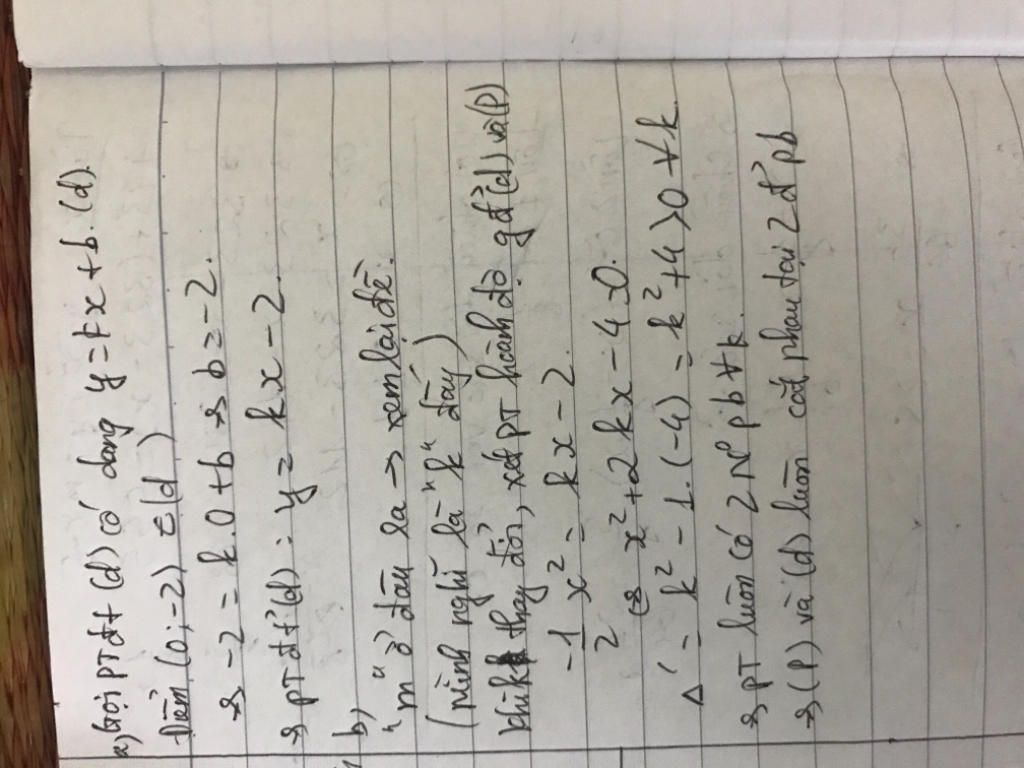 a) Gọi PTđt (d) có dạng y = kx + b. (d).
Điểm (0; -2) ∈ (d)
⇒ -2 = k.0 + b ⇒ b = -2.
⇒ PTđt (d): y = kx - 2.
b)
"m" ở đâu ra → xem lại đề.
(Mình nghĩ là "k" đấy)
Khi k thay đổi, xét PT hoành độ gđ (d) và (P)
-1/2 x² = kx - 2.
⇔ x² + 2kx - 4 = 0.
Δ' = k² - 1.(-4) = k² + 4 > 0 ∀k.
⇒ PT luôn có 2 No pb ∀k.
⇒ (P) và (d) luôn cắt nhau tại 2 đ' pb